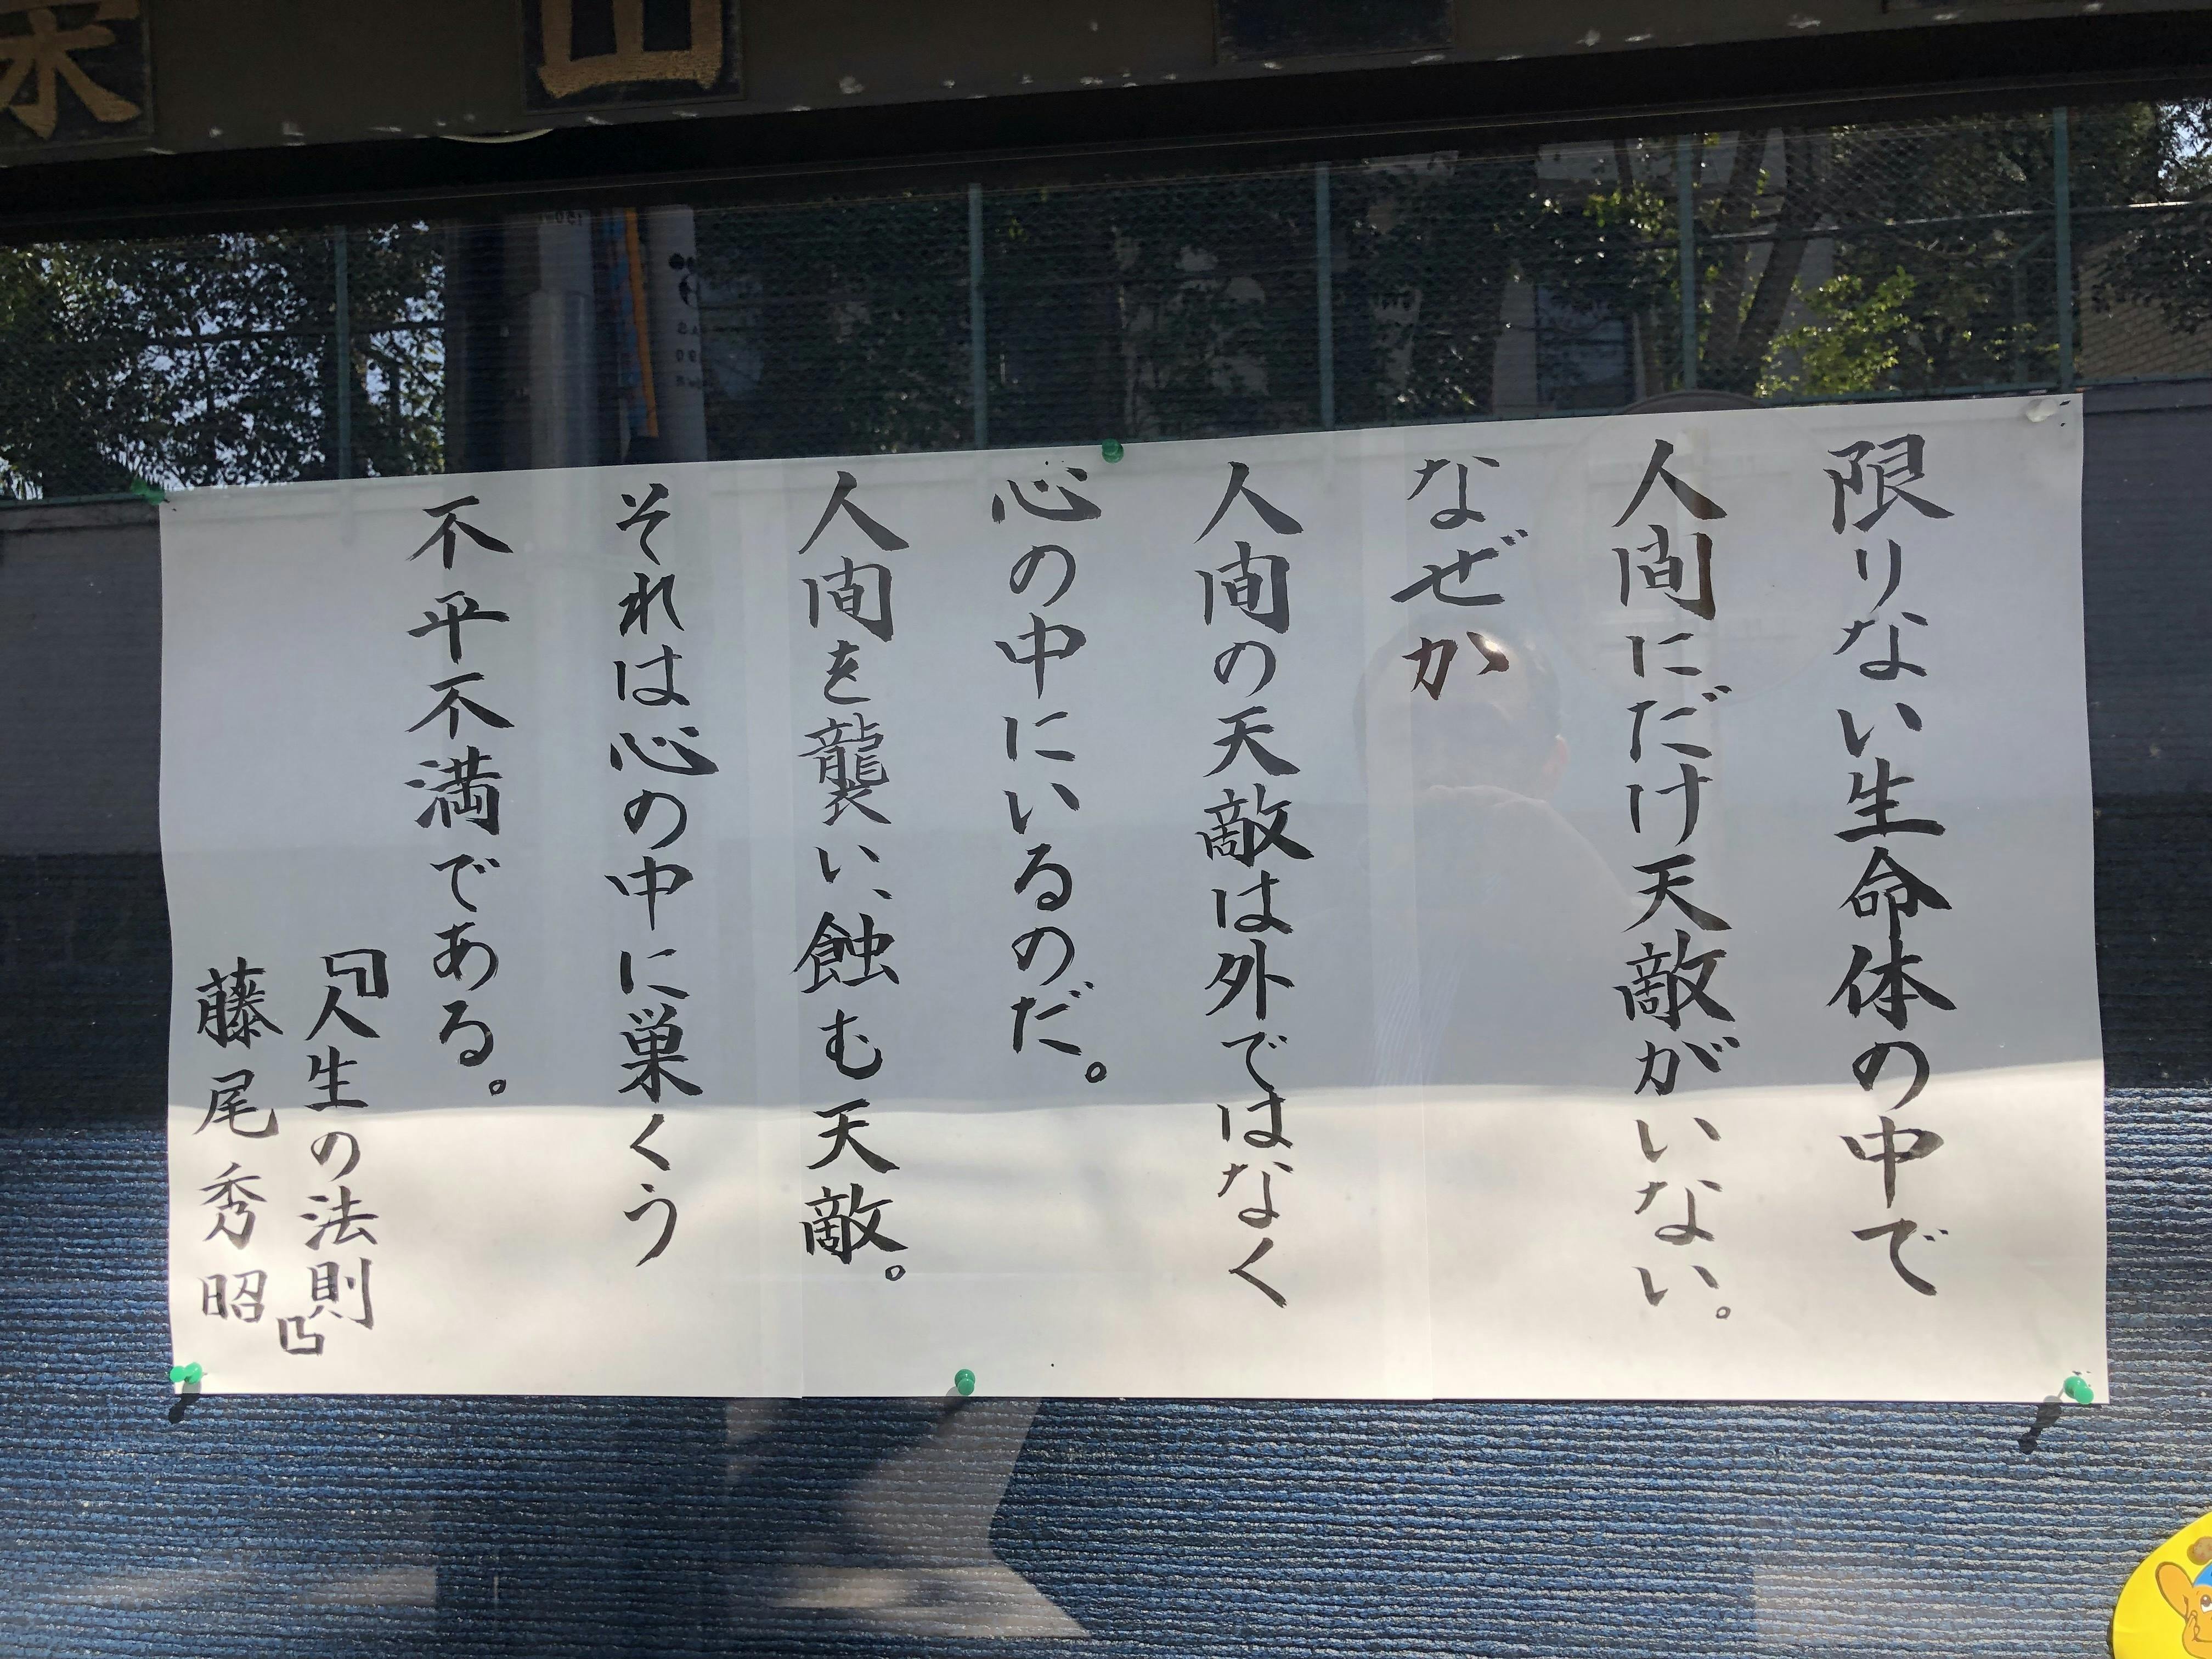 宗
山
限りない生命体の中で
人間にだけ天敵がいない。
なぜか
人間の天敵は外ではなく
心の中にいるのだ。
人間を襲い、蝕む天敵。
それは心の中に巣くう
不平不満である。
『人生の法則』
藤尾秀昭